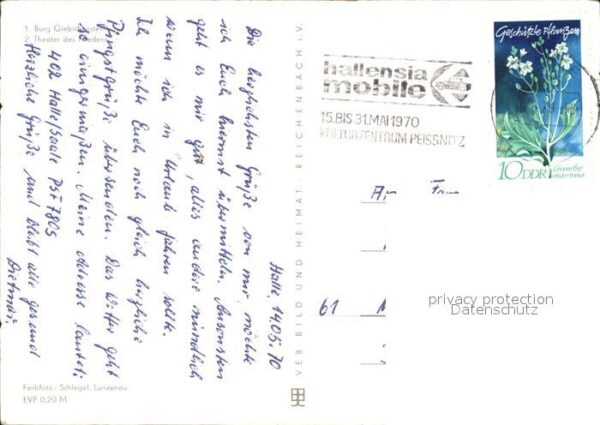 1. Burg Giebichenstein
2. Theater des Friedens
Halle, 11.05.70
Die herzlichsten Grüße von mir möchte
ich Euch hiermit übermitteln. Ansonsten
geht es mir gut, alles andere mündlich
wenn ich in Urlaub fahren sollte.
Ich möchte Euch noch gleich herzliche
Pfingstgrüße übersenden. Das Wetter geht
so einigermaßen. Meine Adresse lautet:
402 Halle/Saale PSF 7803
Herzliche Grüße und bleibt alle gesund
Dietmar
Farbfoto: Schlegel, Lunzenau
EVP 0,20 M
VEB BILD UND HEIMAT REICHENBACH I.V.
hallensia
mobile
15.BIS 31.MAI 1970
KULTURZENTRUM PEISSNITZ
Geschützte Pflanzen
10 DDR
61
privacy protection
Datenschutz